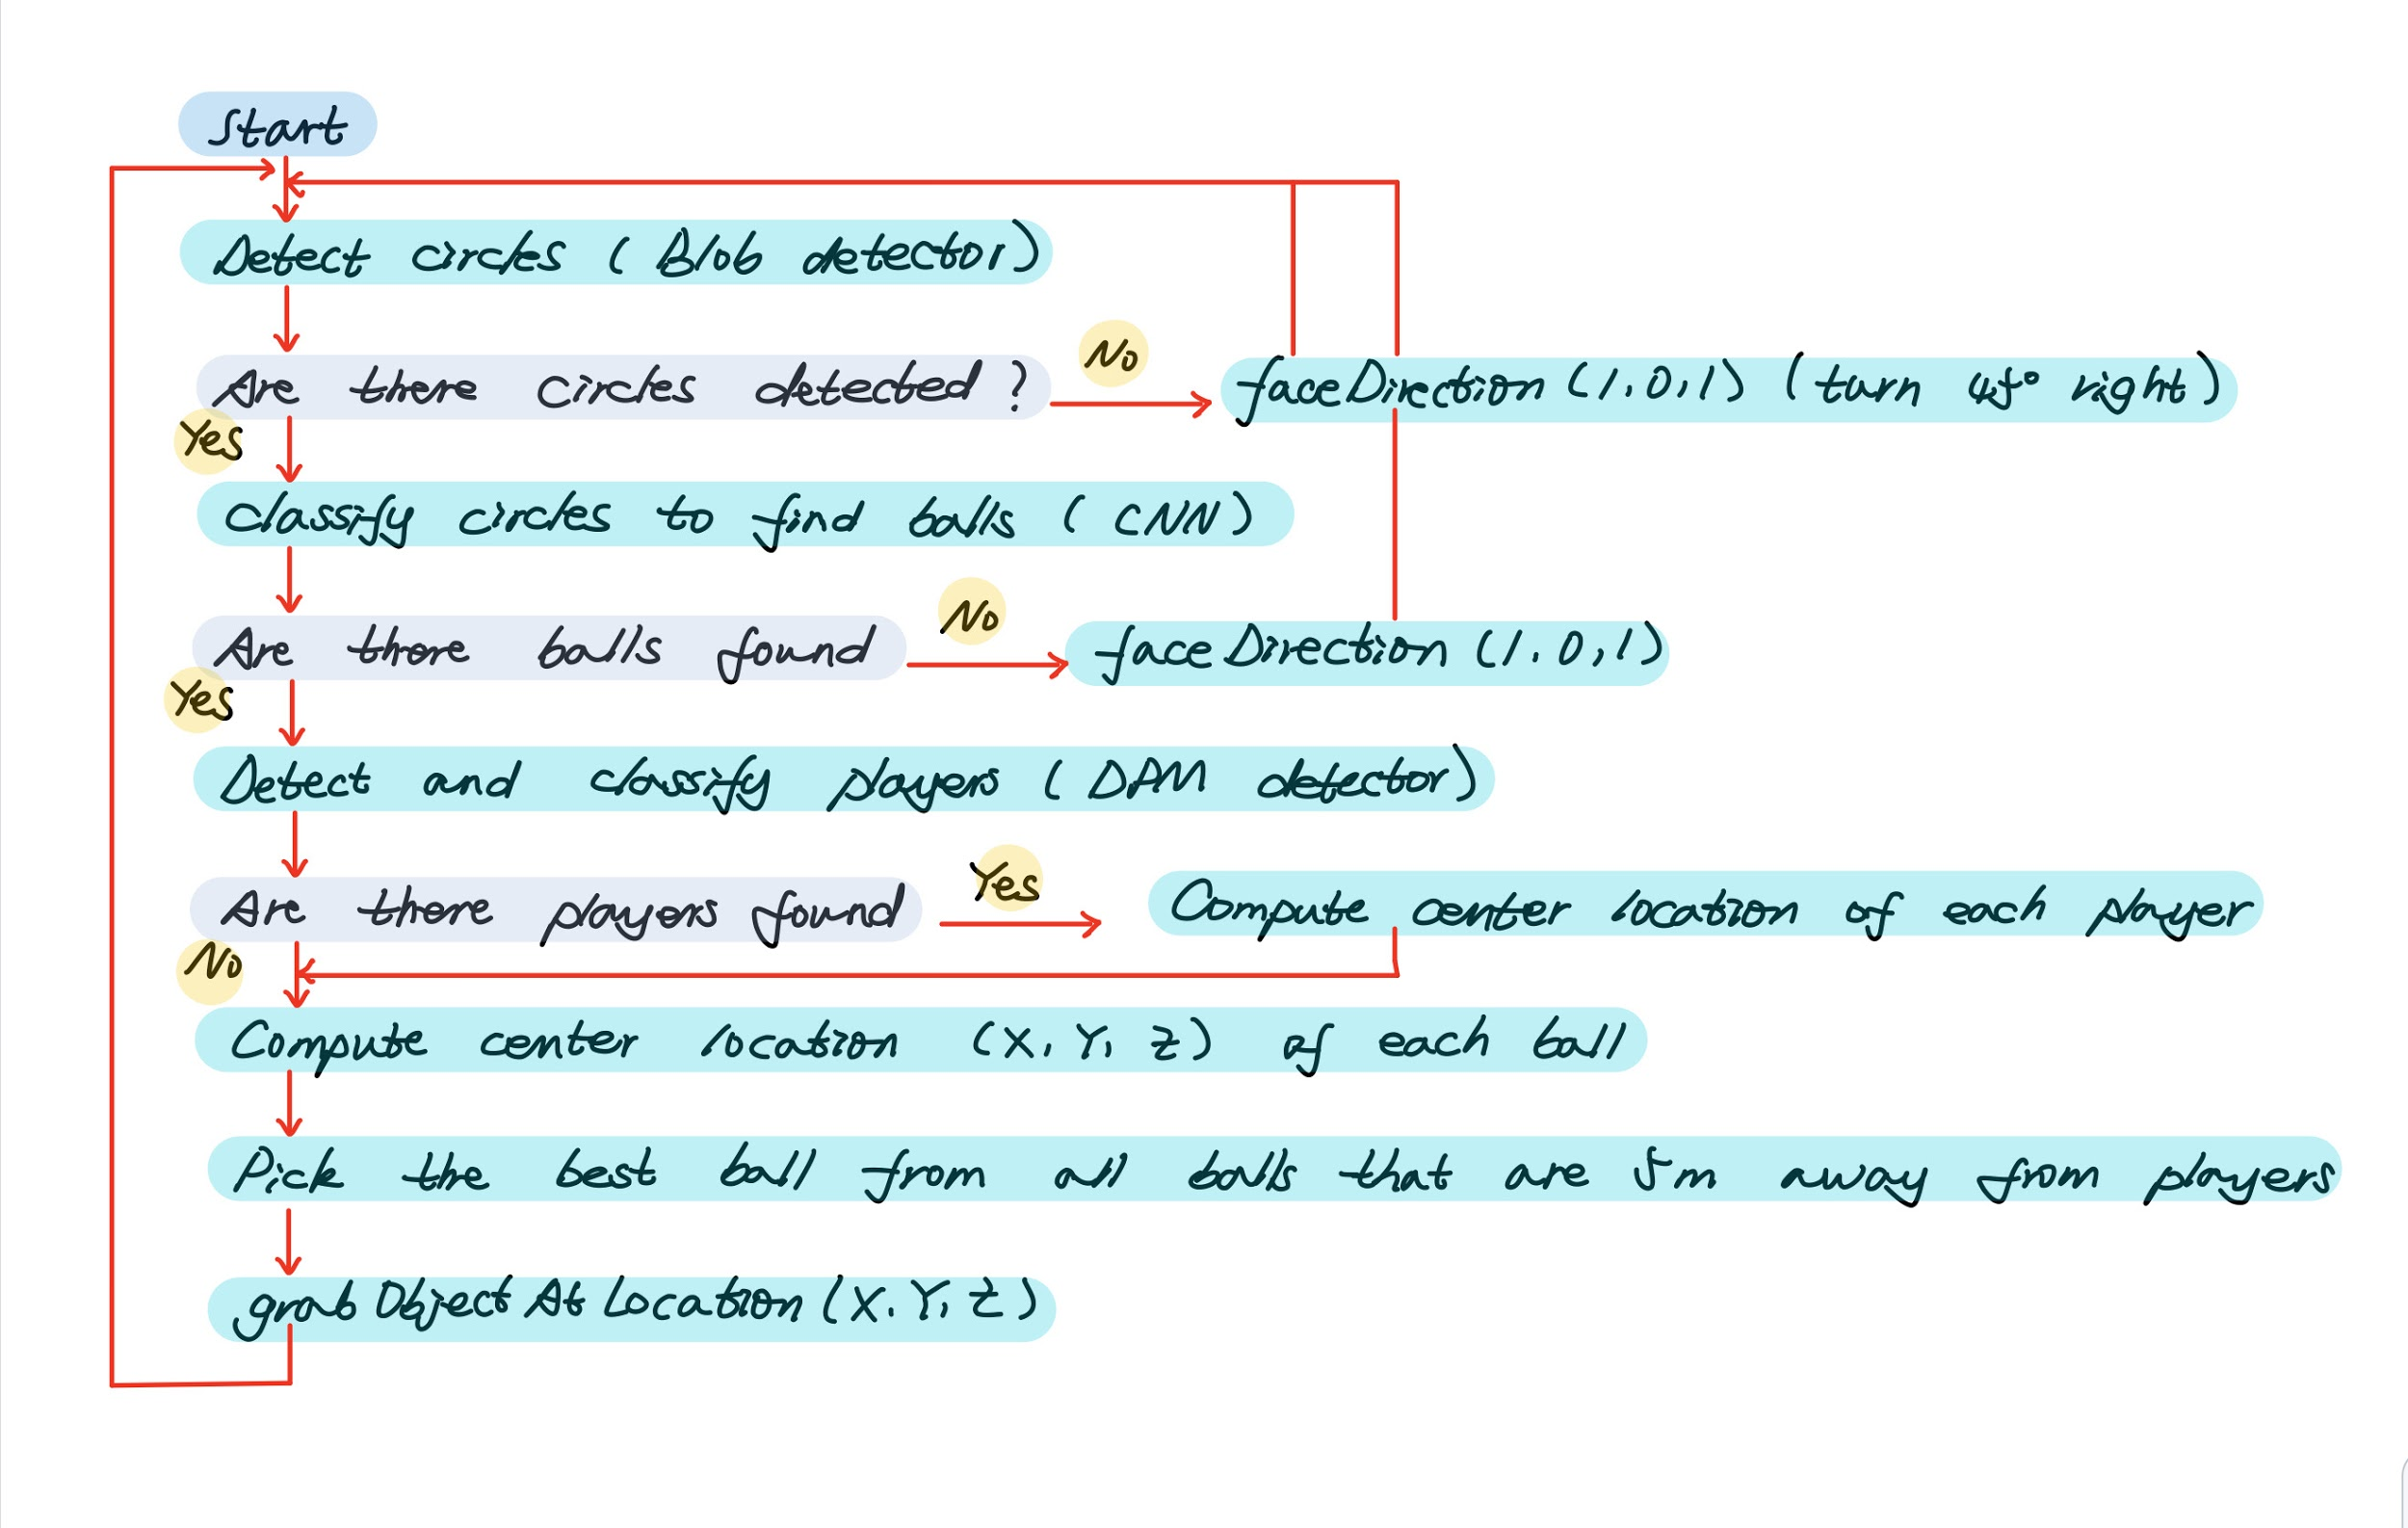 Start
Detect circles (Blob detector)
Are there circles detected?
No
faceDirection (1,0,1) (turn 45° right)
Yes
Classify circles to find balls (CNN)
Are there balls found
No
faceDirection (1,0,1)
Yes
Detect and classify players (DPM detector)
Are there players found
Yes
Compute center location of each player
No
Compute center location (X, Y, Z) of each ball
Pick the best ball from all balls that are 5m away from players
grabObjectAtLocation(X,Y,Z)